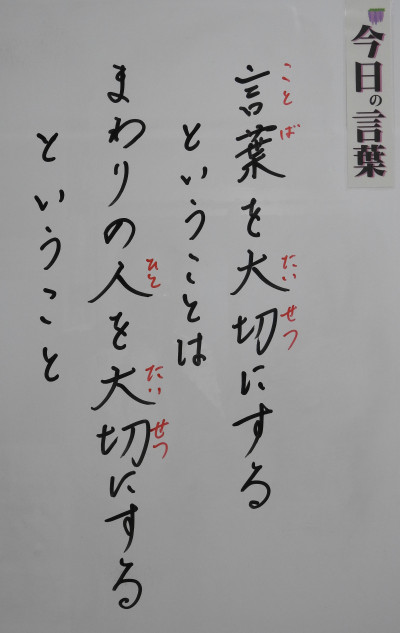 今日の言葉
言葉を大切にする
ことば
たいせつ
ということは
まわりの人を大切にする
ひと
たいせつ
ということ